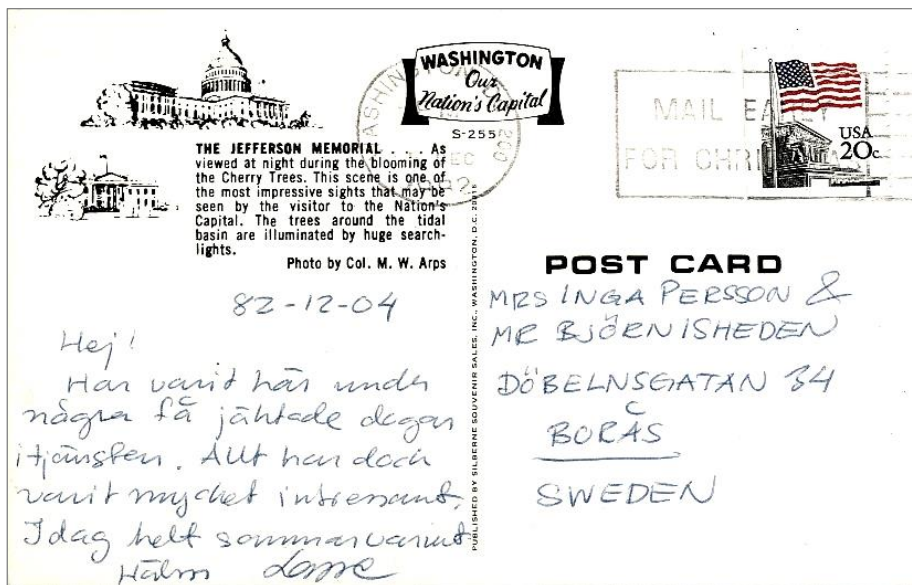 WASHINGTON
Our
Nation's Capital
S-255
THE JEFFERSON MEMORIAL . . . As
viewed at night during the blooming of
the Cherry Trees. This scene is one of
the most impressive sights that may be
seen by the visitor to the Nation's
Capital. The trees around the tidal
basin are illuminated by huge search-
lights.
Photo by Col. M. W. Arps
MAIL
FOR
USA
20c
PUBLISHED BY SILBERNE SOUVENIR SALES, INC., WASHINGTON, D.C.
POST CARD
82-12-04
Hej!
Har varit här under
några få jäktade dagar
i tjänsten. Allt har doch
varit mycket intressant.
Idag helt sommarvarmt
Hälsn Lasse
MRS INGA PERSSON &
MR BJÖRN ISHEDEN
DÖBELNSGATAN 34
BORÅS
SWEDEN